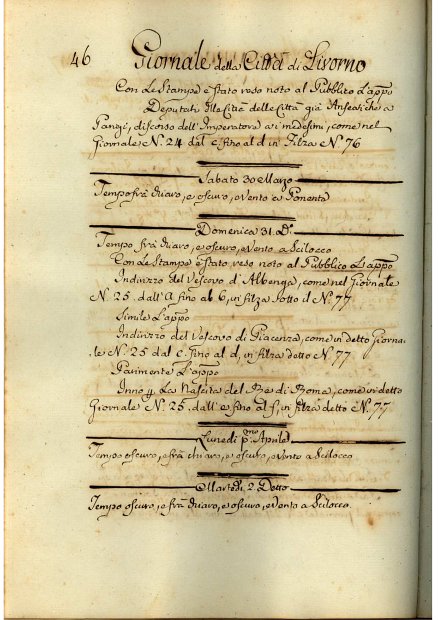 46 Giornale della Città di Livorno
Con Le Stampe è stato reso noto al Pubblico L'appo
Deputati delle Città delle Città già Anseatiche a
Parigi, discorso dell'Imperatore ai medesimi, come nel
Giornale N.° 24 dal c. fino al d in Filza N.° 76
Sabato 30 Marzo
Tempo frà chiaro, e oscuro, e Vento a Ponente
Domenica 31. D.°
Tempo frà chiaro, e oscuro, e Vento a Scilocco
Con Le Stampe è stato reso noto al Pubblico L'appo
Indirizzo del Vescovo d'Albenga, come nel Giornale
N.° 25. dall'a fino al b, in filza sotto il N.° 77
Simile L'appo
Indirizzo del Vescovo di Piacenza, come in detto Giorna-
le N.° 25 dal c. fino al d, in filza detto N.° 77
Parimente L'appo
Inno p. La Nascita del Re di Roma, come in detto
Giornale N.° 25. dall'e fino al f, in filza detto N.° 77
Lunedì p.mo Aprile
Tempo oscuro, e frà chiaro, e oscuro, e Vento a Scilocco
Martedì 2. Detto
Tempo oscuro, e frà chiaro, e oscuro, e Vento a Scilocco